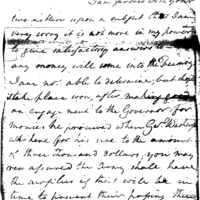 I am favored with your
two net^rs upon a subject that I am
very sorry it is not more in my power
to give satisfactory answer
any money will come into the Treasury
I am not able to determine, but hope
stake place won, after making good
an engagement to the Governor for
monies he procured when Gen. Washington
was here for his use to the amount
of three thousand dollars, you may
rest assured the Army shall have
the surplus if this will be in
time to prevent their passing the